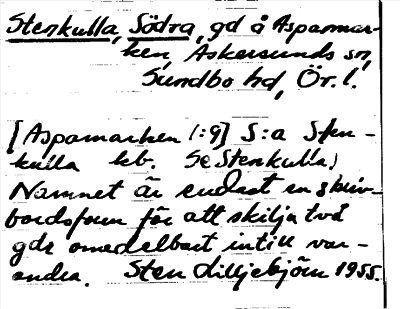 Stenkulla, Södra, gd å Aspamar-
ken, Askersunds sn,
Sundbo hd, Ör. l.
[Aspamarken 1:9] S:a Sten-
kulla kb. Se Stenkulla,
Namnet är endast en skriv-
bordsform för att skilja två
gdr omedelbart intill var-
andra. Sten Lilljebjörn 1955.